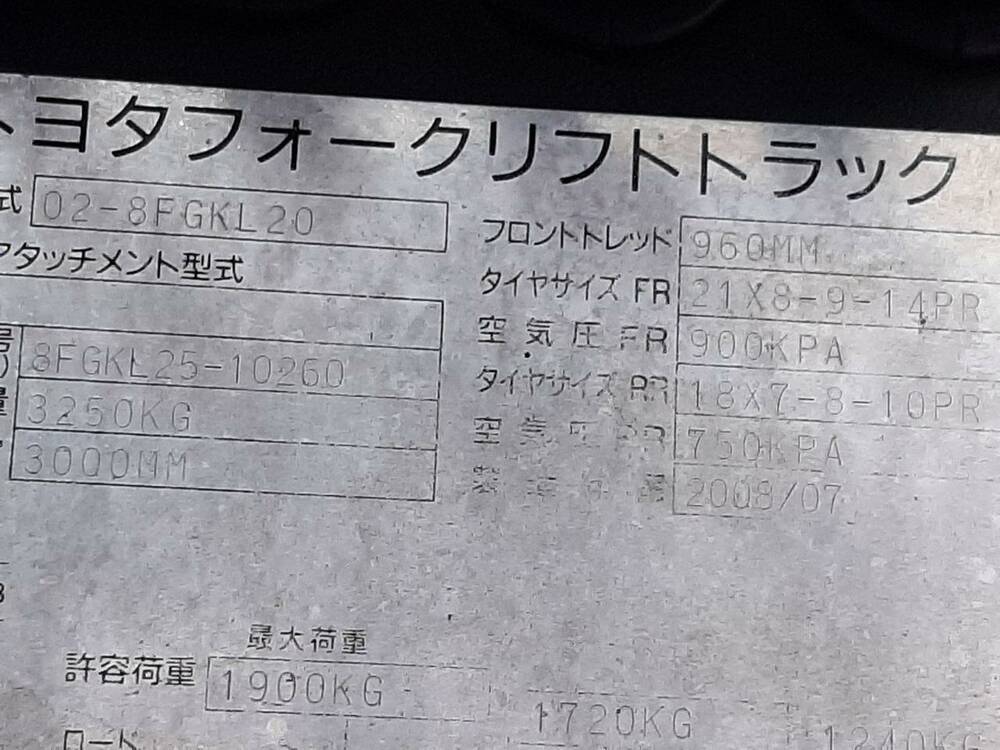 トヨタフォークリフトトラック
式 02-8FGKL20
アタッチメント型式
号 8FGKL25-10260
量 3250KG
3000MM
フロントトレッド 960MM
タイヤサイズ FR 21X8-9-14PR
空気圧 FR 900KPA
タイヤサイズ RR 18X7-8-10PR
空気圧 RR 750KPA
2008/07
最大荷重
許容荷重 1900KG 1720KG 1240KG
ロード